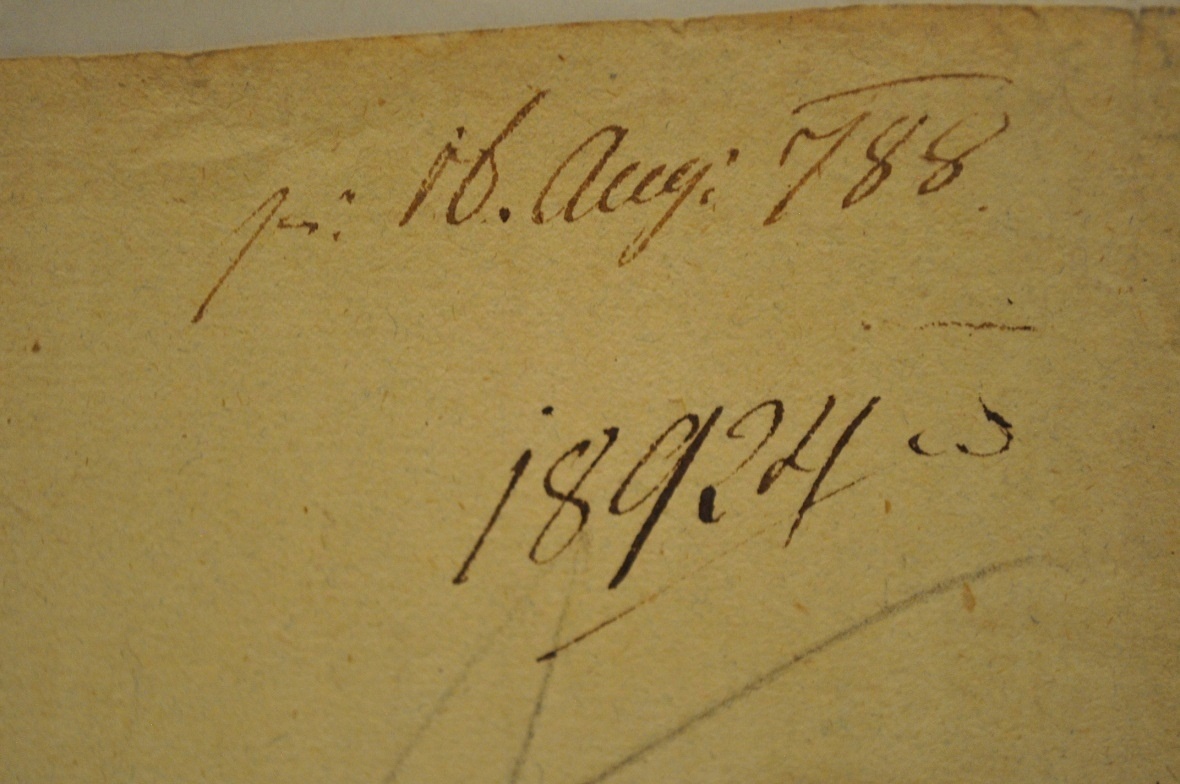 pr: 16. Aug: 788.
18924